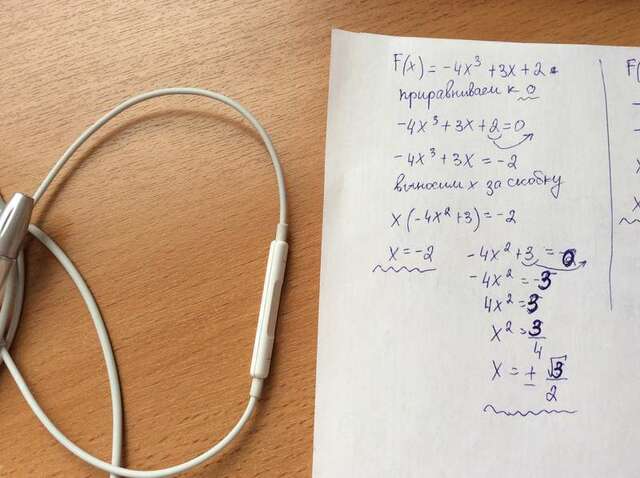 F(x) = -4x³ + 3x + 2.
приравниваем к 0
-4x³ + 3x + 2 = 0
-4x³ + 3x = -2
выносим x за скобку
x(-4x² + 3) = -2
x = -2
-4x² + 3 = 0
-4x² = -3
4x² = 3
x² = 3/4
x = ± √3/2
F(
x
x